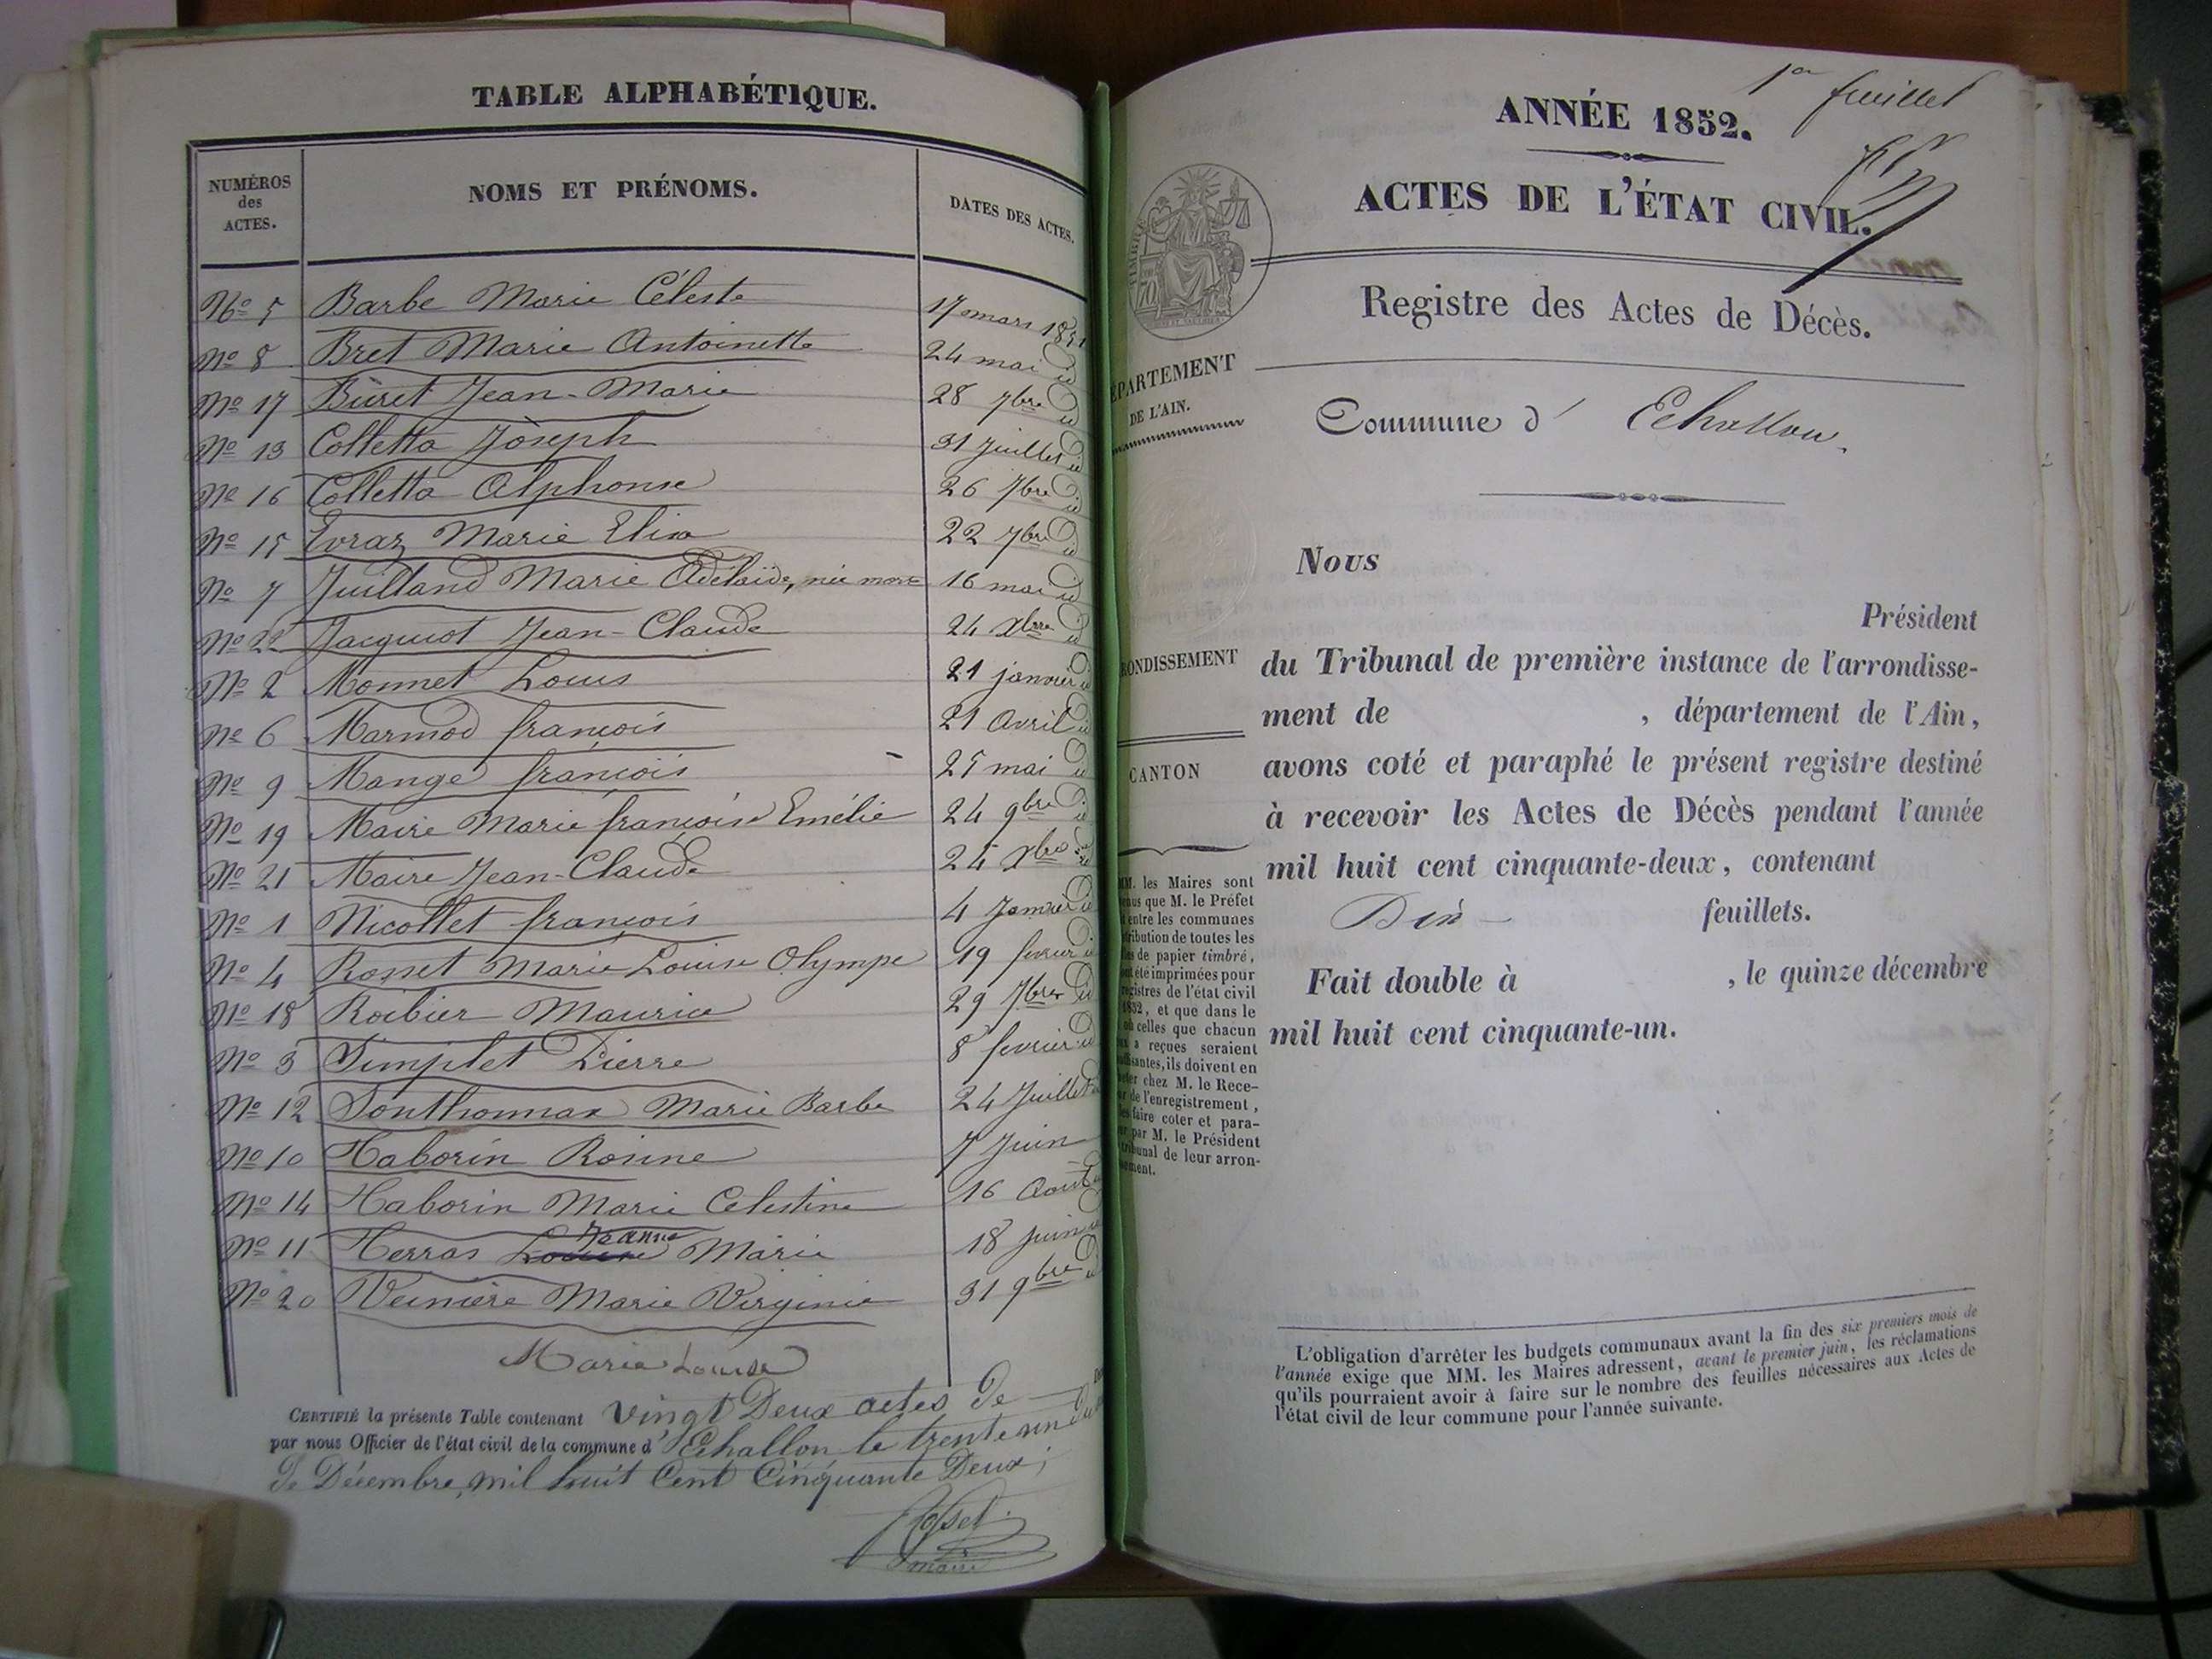 TABLE ALPHABÉTIQUE.
NUMÉROS des ACTES.
NOMS ET PRÉNOMS.
DATES DES ACTES.
No 5 Barbe Marie Céleste 17 mars 1851
No 8 Bret Marie Antoinette 24 mai id
No 17 Buret Jean-Marie 28 7bre id
No 13 Colletta Joseph 31 Juillet id
No 16 Colletta Alphonse 26 7bre id
No 15 Evraz Marie Elisa 22 7bre id
No 7 Juilland Marie Adélaïde, née morte 16 mai id
No 22 Jacquiot Jean-Claude 24 Xbre id
No 2 Monnet Louis 21 janvier id
No 6 Marmod françois 21 Avril id
No 9 Mange françois 25 mai id
No 19 Maire Marie françoise Emélie 24 9bre id
No 21 Maire Jean-Claude Xbre
No 1 Nicollet françois 4 Janvier id
No 4 Rosset Marie Louise Olympe 19 fevrier id
No 18 Roibier Maurice 29 7bre id
No 3 Simplet Pierre 8 fevrier id
No 12 Sonthonnax Marie Barbe 24 Juillet
No 10 Taborin Rosine 7 Juin
No 14 Taborin Marie Celestine 16 Aout
Jeanne
No 11 Terras Marie 18 Juin
No 20 Marie Virginie 31 9bre id
Marie Louise
CERTIFIÉ la présente Table contenant Vingt Deux actes de
par nous Officier de l'état civil de la commune d' Echallon le trente un
De Décembre, mil huit Cent Cinquante Deux;
maire
1er feuillet
ANNÉE 1852.
ACTES DE L'ÉTAT CIVIL.
TIMBRE
Registre des Actes de Décès.
PARTEMENT
DE L'AIN.
Commune d' Echallon
Nous
Président
RONDISSEMENT
du Tribunal de première instance de l'arrondisse-
ment de , département de l'Ain,
CANTON
avons coté et paraphé le présent registre destiné
à recevoir les Actes de Décès pendant l'année
mil huit cent cinquante-deux, contenant
Dix feuillets.
Fait double à , le quinze décembre
mil huit cent cinquante-un.
MM. les Maires sont
nus que M. le Préfet
entre les communes
tribution de toutes les
es de papier timbré,
nt été imprimées pour
gistres de l'état civil
1852, et que dans le
où celles que chacun
a reçues seraient
ffisantes, ils doivent en
ter chez M. le Rece-
r de l'enregistrement,
es faire coter et para-
er par M. le Président
tribunal de leur arron-
ement.
L'obligation d'arrêter les budgets communaux avant la fin des six premiers mois de
l'année exige que MM. les Maires adressent, avant le premier juin, les réclamations
qu'ils pourraient avoir à faire sur le nombre des feuilles nécessaires aux Actes de
l'état civil de leur commune pour l'année suivante.